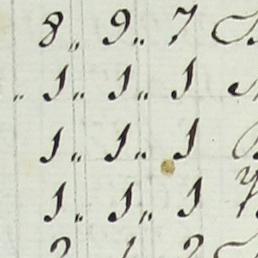 8,, 9,, 7
,, 1,, 1,, 1
1,, 1,, 1
1,, 1,, 1
2 1 2